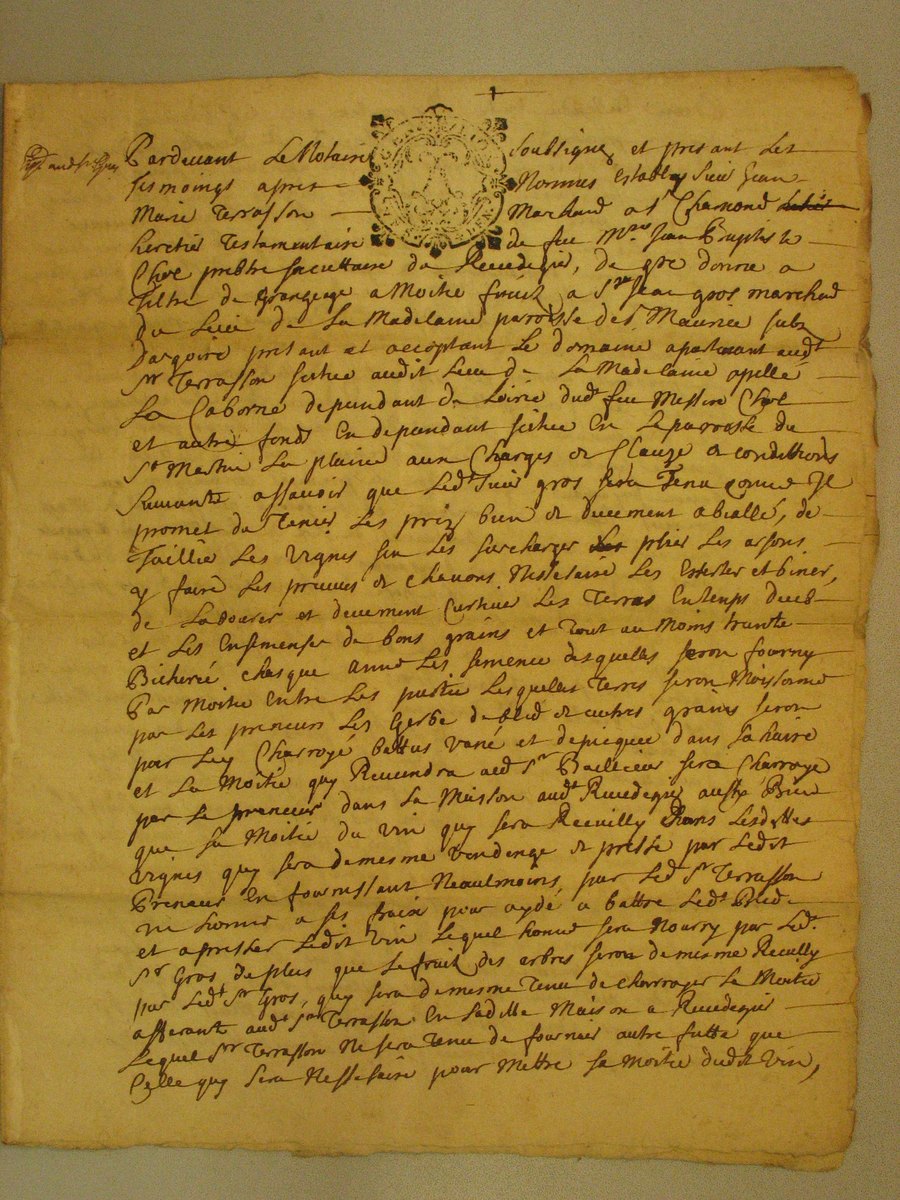 Pardevant Le Notaire soubsigne et presant Les
tesmoings apres Nommes estably Sieur Jean
Marie Terrasson Marchand a St Chamond
heretier Testamentaire de feu Mre Jean Baptiste
Chol prebtre socuettaire de Rivedegier, de gre donne a
Tiltre de grangeage a Moitié fruit a Sr Jean gros marchand
du Lieu de La Madelaine paroisse de St Maurice sub
Dargoire presant et acceptant Le domaine apartenant audt
Sr Terrasson scitue audit Lieu de La Madelaine apellé
La Caborne dependant de Loirie dudt feu Messire Chol
et autre fondz En dependant scitue En Le parroisse de
St Martin La plaine aux Charges & Clauze & conditions
Suivante assavoir que Ledt Sieur gros sera Tenu comme Je
promet de Tenir Les prez bien & duement abiallé, de
Taillie Les vignes sen Les surcharger plier Les arsons
y faire Les preuves & chavons Nessesaire Les Esserter et biner,
de Labourer et deuement Curtiver Les Terres En temps deub
et Les Ensemenser de bons grains et tout au Moins trante
Bicheré chasque anné Les semence desquelles seron fourny
Par Moitie Entre Les partie Lesquelles Terres seron Moissonné
par Les preneurs Les Gerbe de bled & autres grains seron
par Luy Charroyé battus vané et depicquée dans sa haire
et La Moitié quy Reviendra audt Sr Bailleur sera Charroye
par Le preneur dans La Maison audt Rivedegié aussy Bien
que sa Moitié du vin quy sera Recuilly dans Lesdittes
vignes quy sera de mesme vendenge & presse par Ledit
Preneur En fournissant Neaulmoins par Ledt Sr Terrasson
un homme a ses fraix pour aydé a battre Ledt Bled
et a presser Ledit vin Lequel homme sera Nourry par Ledt
Sr Gros de plus que Le fruit des arbres seron de mesme Recuilly
par Ledt Sr Gros, quy sera de mesme Tenu de charroyer La Moitié
afferante audt Sr Terrasson En Laditte Maison a Rivedegié
Lequel Sr Terrasson Ne sera Tenu de fournir autre futte que
Celle quy Sera Nessesaire pour Mettre sa Moitié dudit vin,